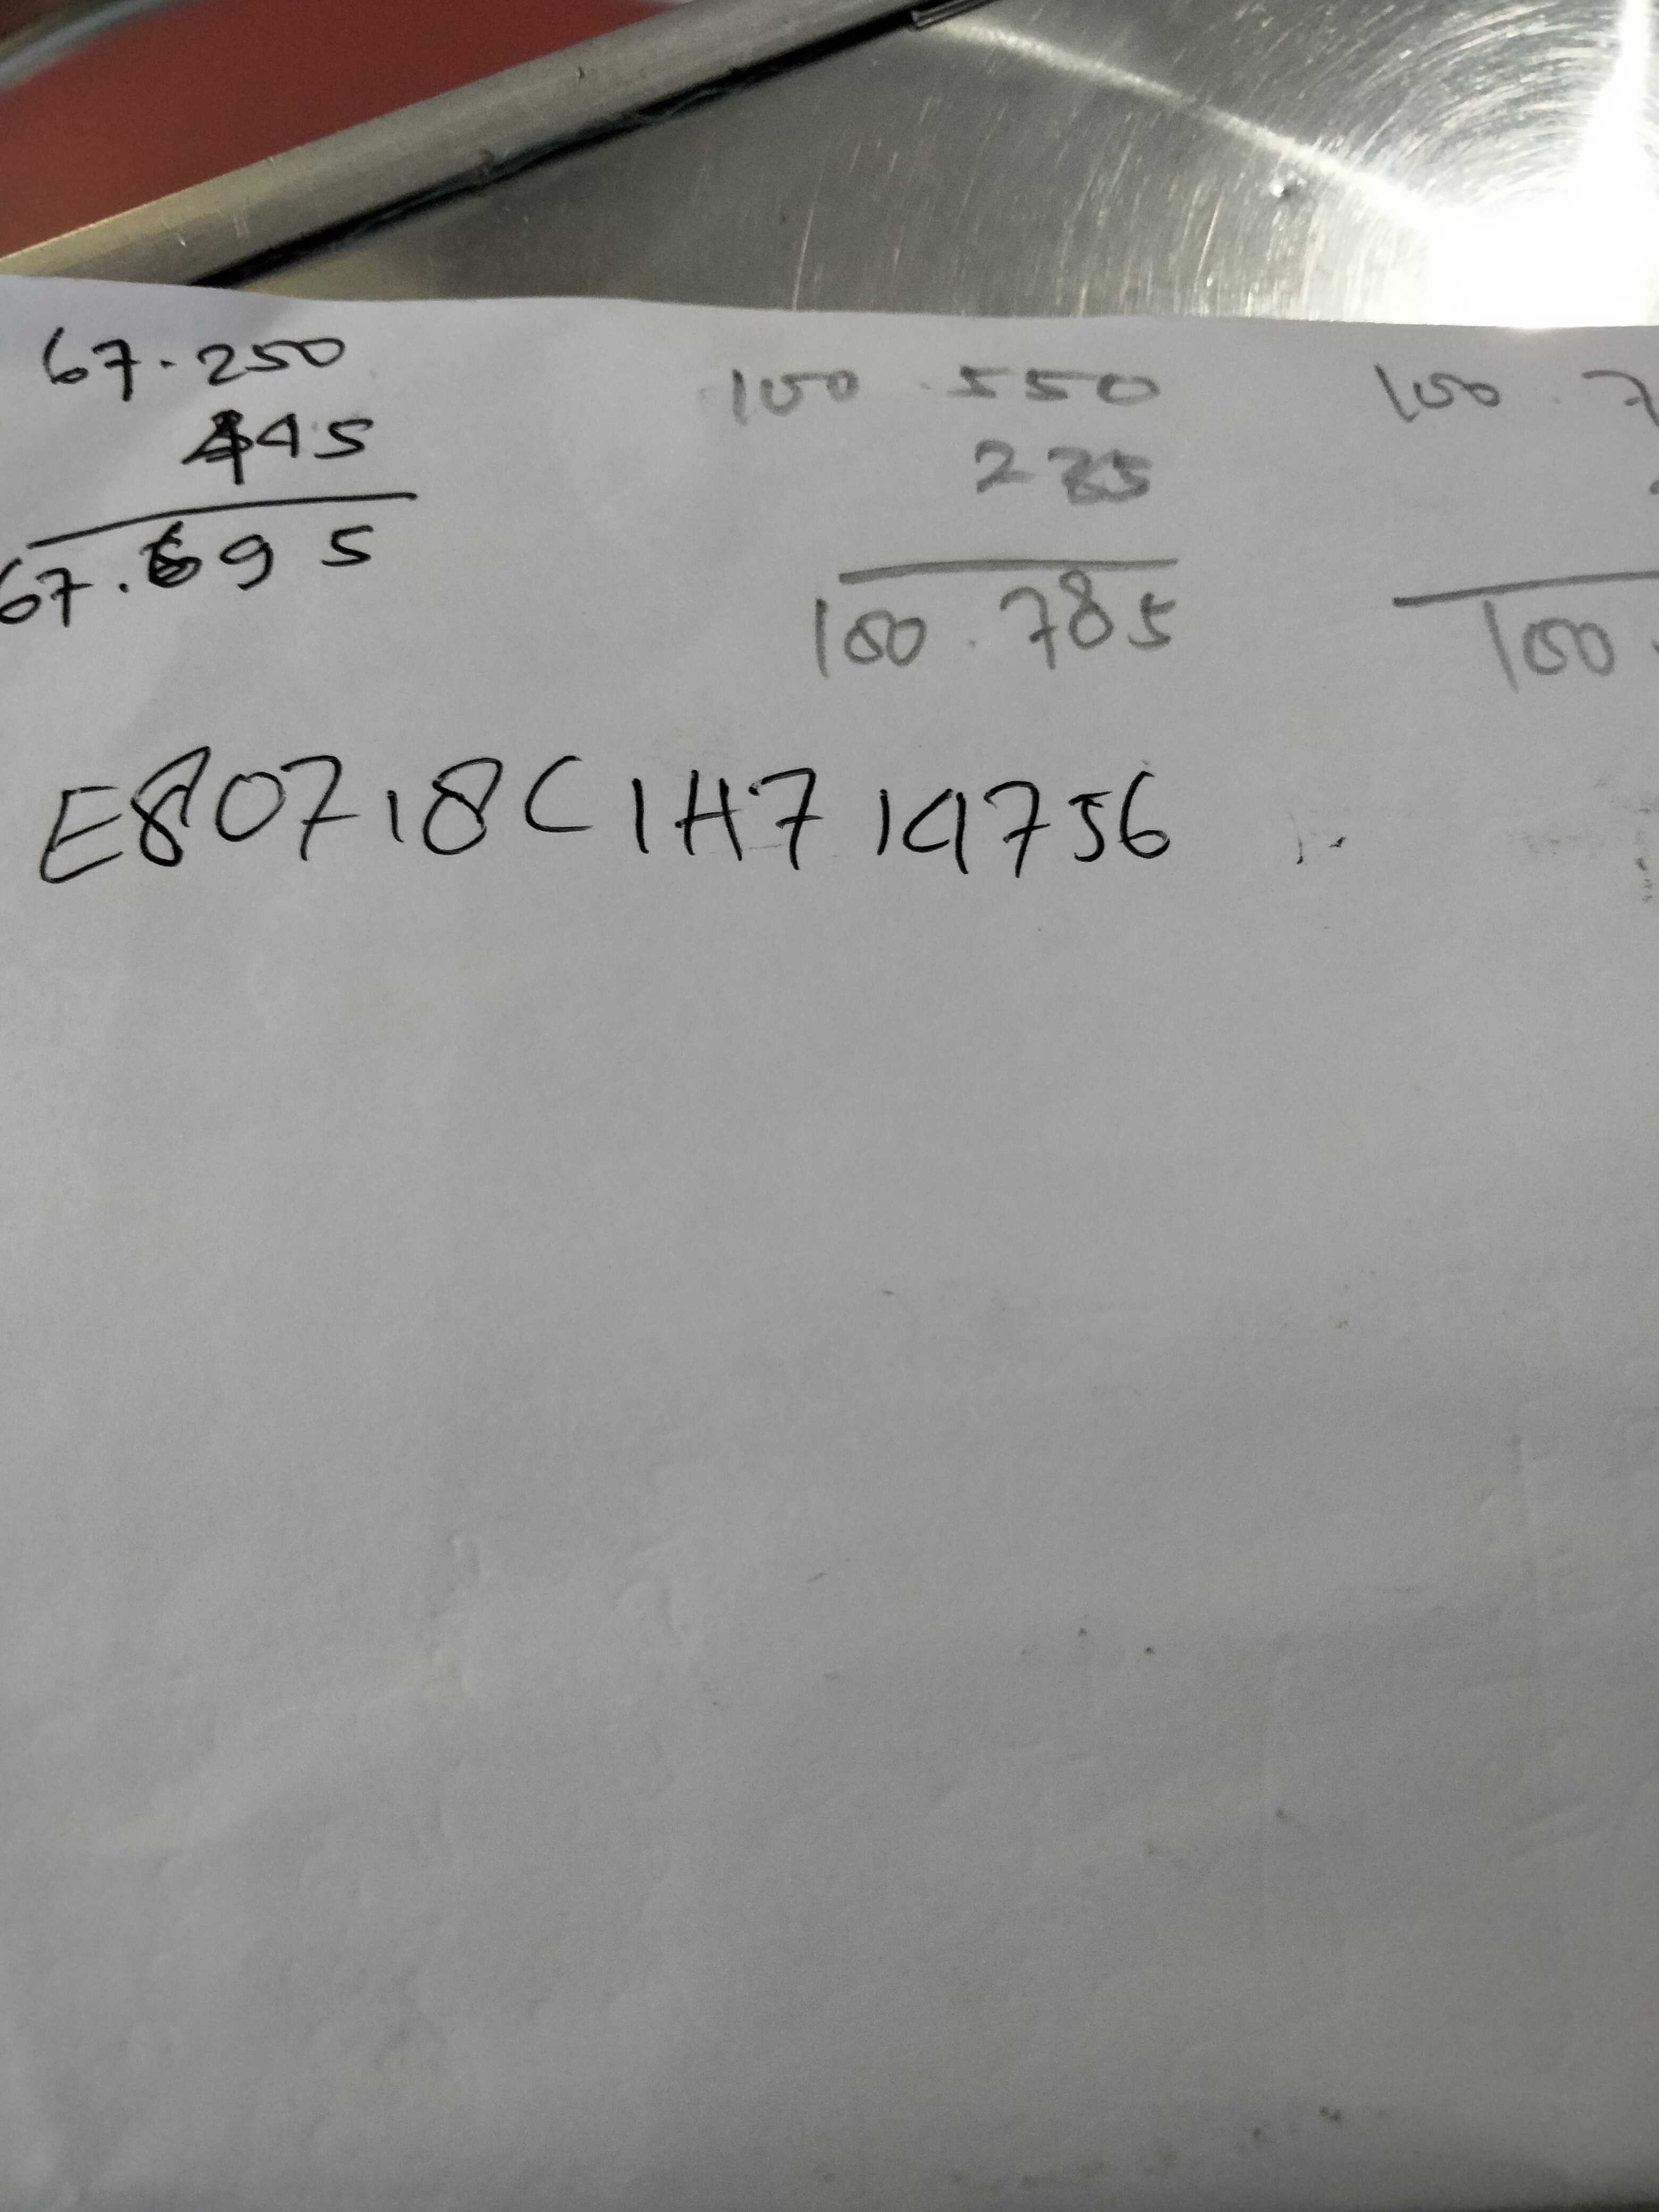 67.250 100.550 100.7
445 235
67.695 100.785 100.
E80718C1H714756